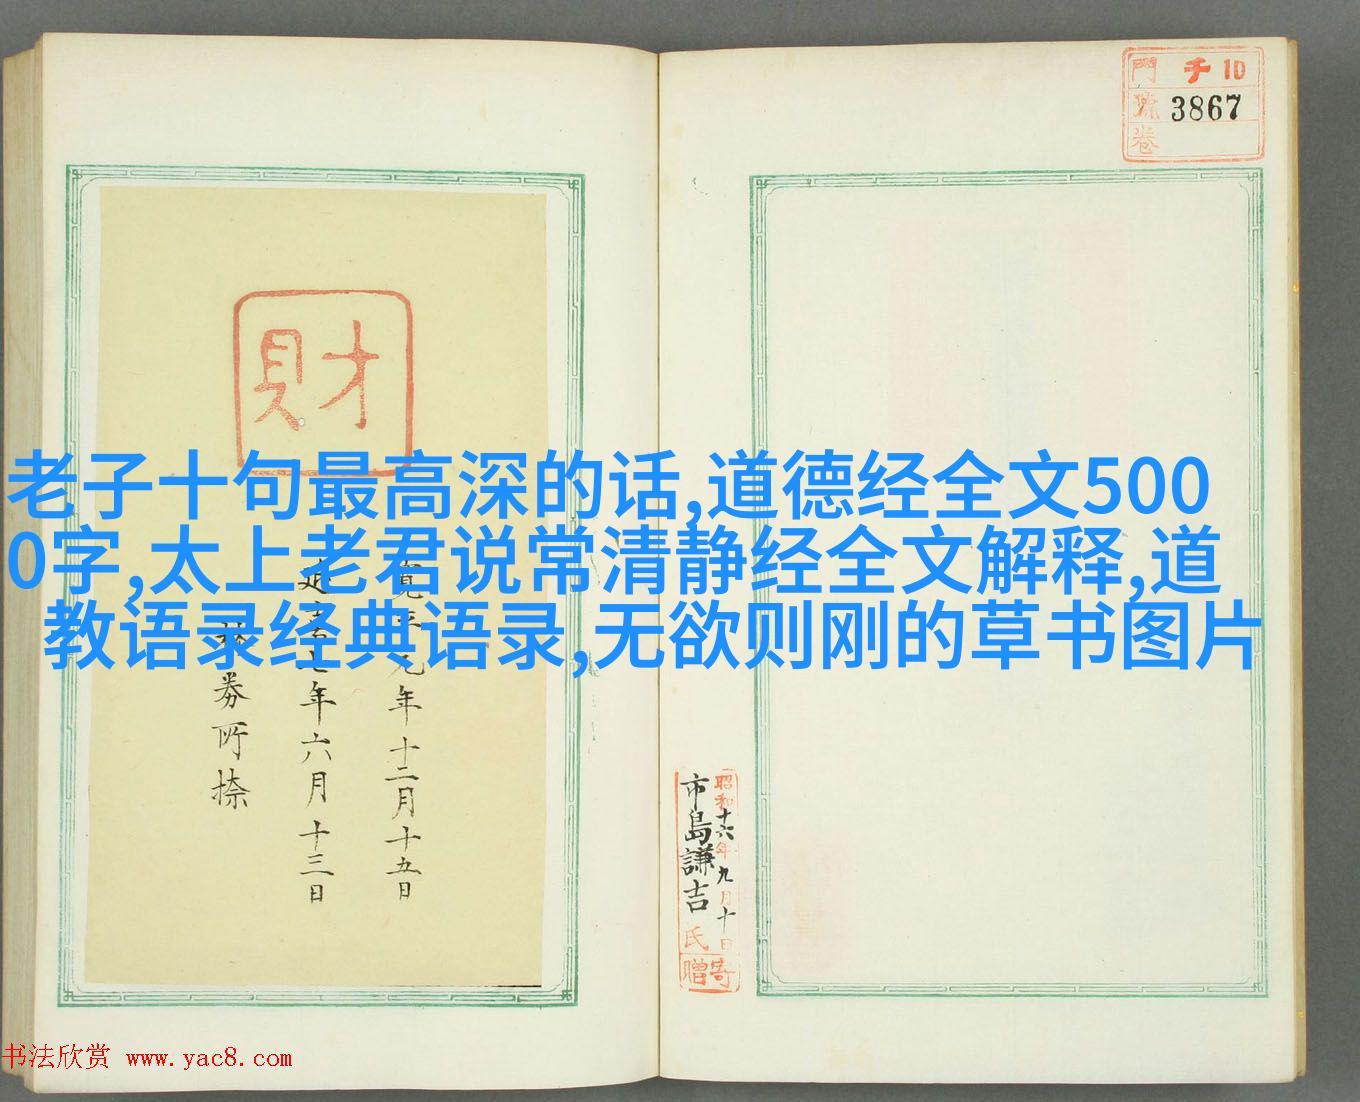 門 千 10
號 3867
卷
財
老子十句最高深的话,道德经全文500
0字,太上老君说常清静经全文解释,道
教语录经典语录,无欲则刚的草书图片
年十二月十五日
年六月十三日
券所捺
昭和十六年九月十日
市島謙吉氏寄贈
书法欣赏 www.yac8.com